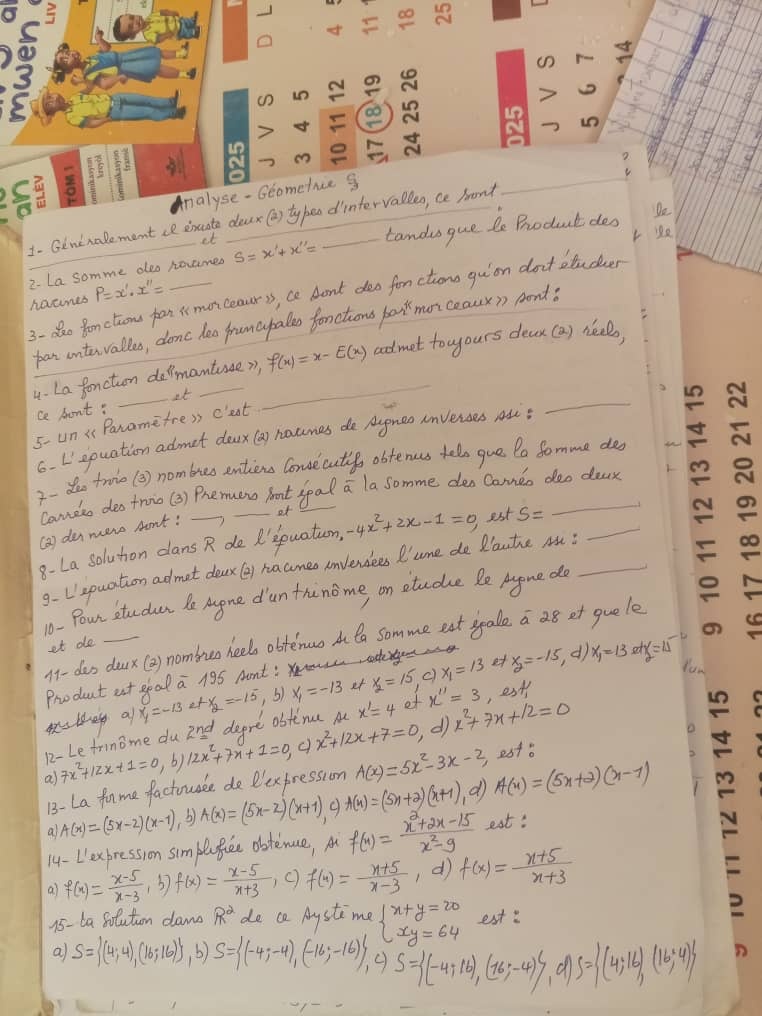 mwen
LIV
ELÈV
TÒM 1
025
J V S
3 4 5
10 11 12
17 18 19
24 25 26
D L
4
11
18
25
025
J V S
5 6 7
14
Analyse - Géometrie
1- Généralement il éxiste deux (2) types d'intervalles, ce sont
______ et ______.
2- La somme des racines S = x' + x'' = ______ tandis que le Produit des
racines P = x' . x'' = ______
3- Les fonctions par « morceaux », ce sont des fonctions qu'on doit étudier
par intervalles, donc les principales fonctions par "morceaux » sont :
4- La fonction de "mantisse », f(x) = x - E(x) admet toujours deux (2) réels,
ce sont : ______ et ______
5- un « Paramètre » c'est ______
6- L'équation admet deux (2) racines de signes inverses ssi : ______
7- Les trois (3) nombres entiers Consécutifs obtenus tels que la Somme des
Carrées des trois (3) Premiers sont égal à la somme des Carrés des deux
(2) derniers sont : ____, ____ et ____
8- La solution dans R de l'équation, -4x² + 2x - 1 = 0, est S = ______
9- L'équation admet deux (2) racines inversées l'une de l'autre ssi : ______
10- Pour étudier le signe d'un trinôme, on étudie le signe de ______
et de ____
11- des deux (2) nombres réels obtenus si la somme est égale à 28 et que le
Produit est égal à 195 sont :
a) x₁ = -13 et x₂ = -15, b) x₁ = -13 et x₂ = 15, c) x₁ = 13 et x₂ = -15, d) x₁ = 13 et x₂ = 15
12- Le trinôme du 2nd degré obtenu si x' = 4 et x'' = 3, est :
a) 7x² + 12x + 1 = 0, b) 12x² + 7x + 1 = 0, c) x² + 12x + 7 = 0, d) x² + 7x + 12 = 0
13- La forme factorisée de l'expression A(x) = 5x² - 3x - 2, est :
a) A(x) = (5x - 2)(x - 1), b) A(x) = (5x - 2)(x + 1), c) A(x) = (5x + 2)(x + 1), d) A(x) = (5x + 2)(x - 1)
14- L'expression simplifiée obtenue, si f(x) = (x² + 2x - 15)/(x² - 9) est :
a) f(x) = (x - 5)/(x - 3), b) f(x) = (x - 5)/(x + 3), c) f(x) = (x + 5)/(x - 3), d) f(x) = (x + 5)/(x + 3)
15- La Solution dans R² de ce système { x + y = 20
xy = 64 est :
a) S = {(4; 4), (16; 16)}, b) S = {(-4; -4), (-16; -16)}, c) S = {(-4; 16), (16; -4)}, d) S = {(4; 16), (16; 4)}
9 10 11 12 13 14 15
16 17 18 19 20 21 22
9 10 11 12 13 14 15